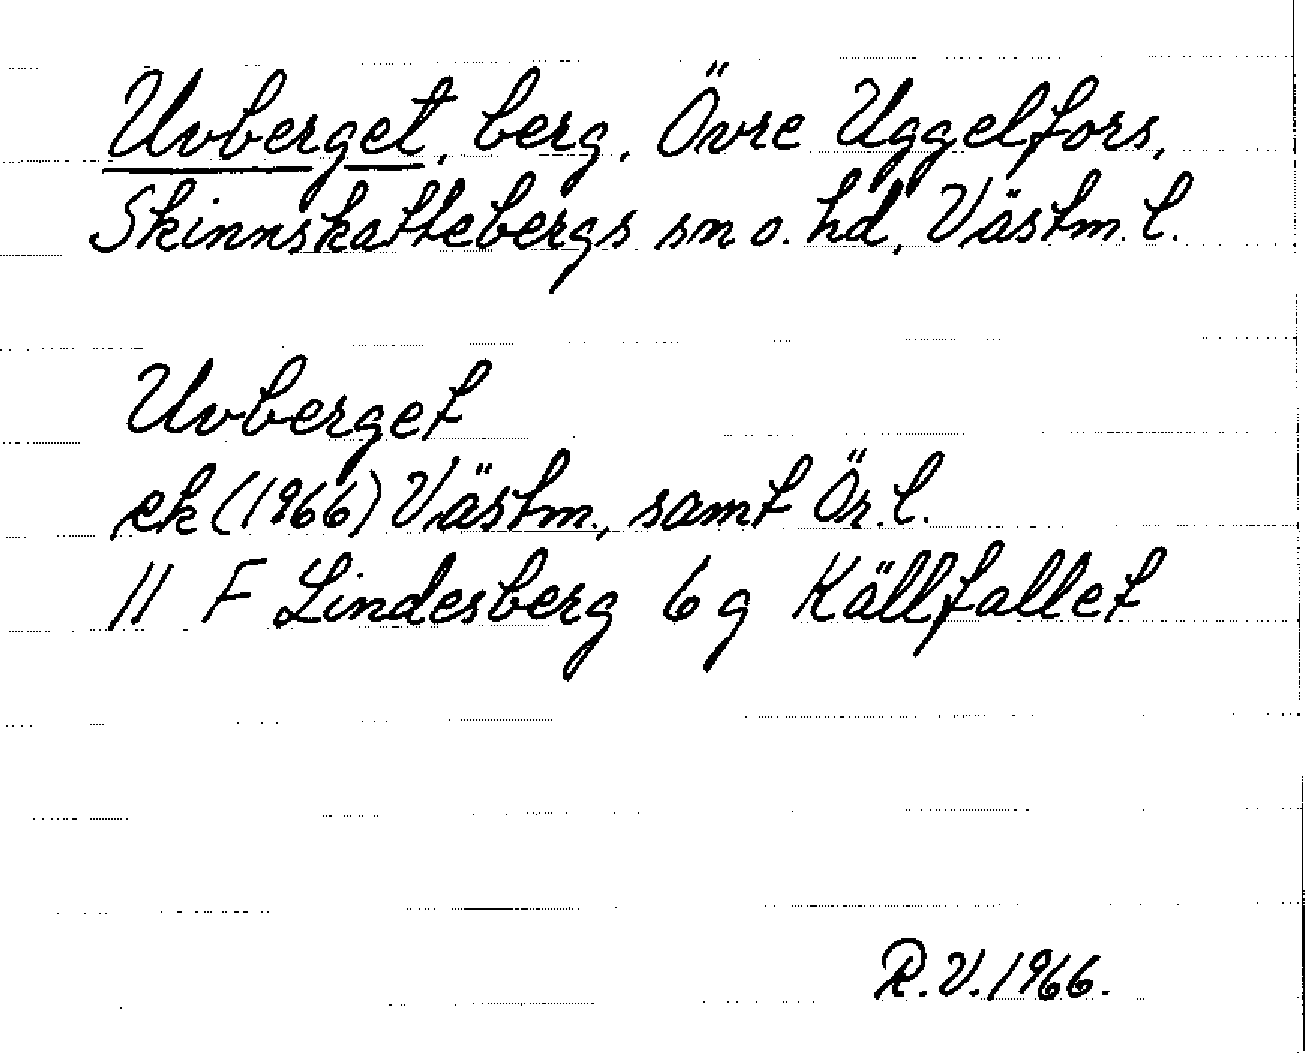 Uvberget, berg, Övre Uggelfors,
Skinnskattebergs sn o. hd, Västm. l.
Uvberget
ek (1966) Västm., samt Ör. l.
11 F Lindesberg 6 g Källfallet
R.V. 1966.